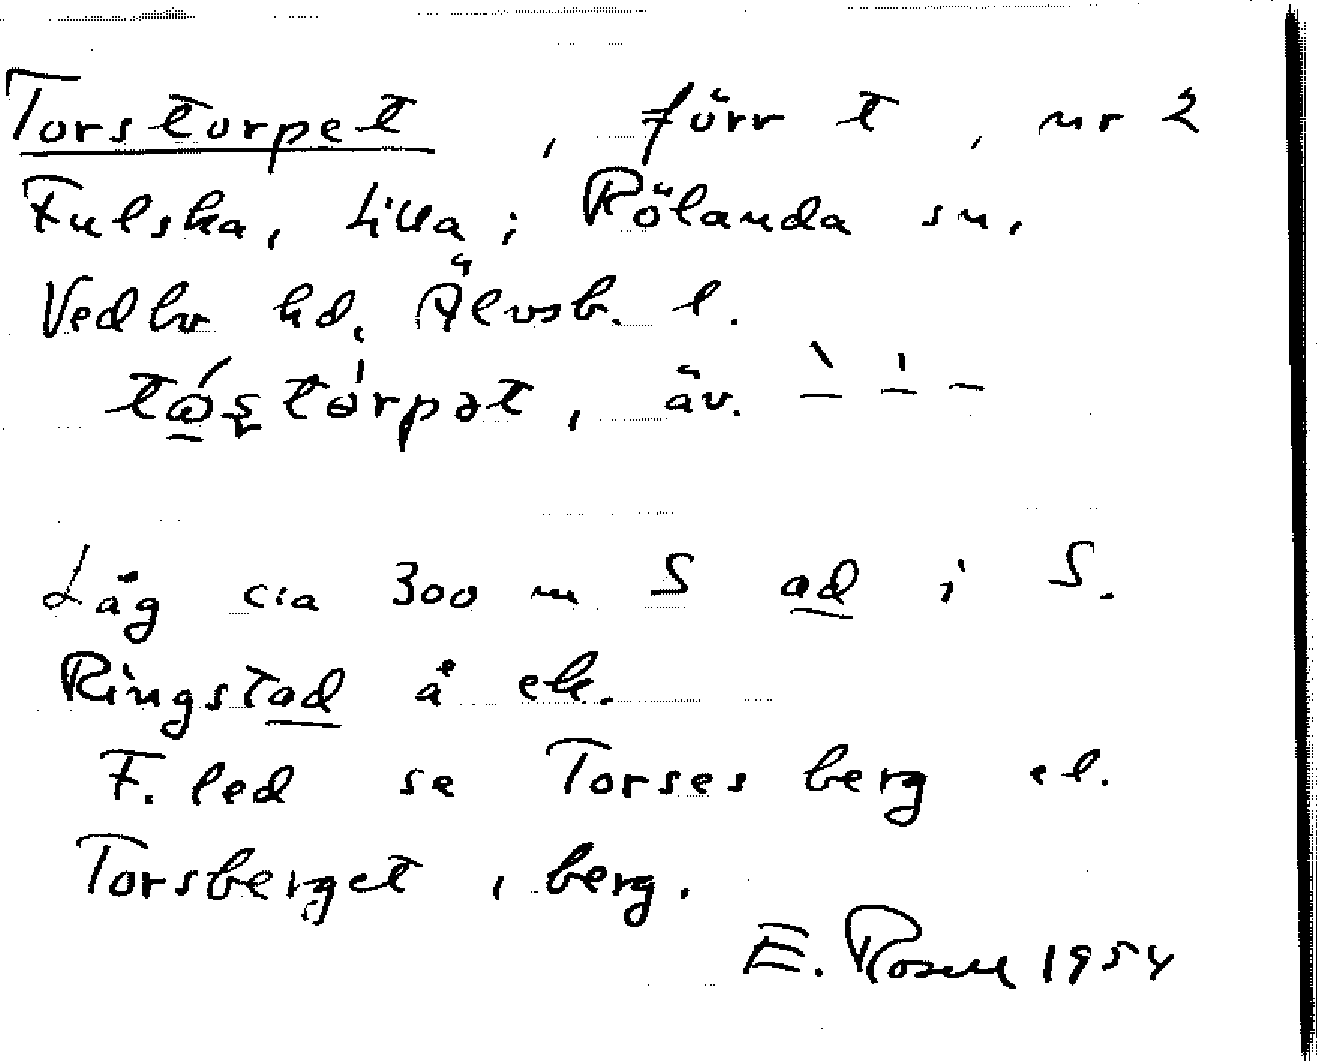 Torstorpet, förr t, nr 2
Fulska, Lilla; Rölanda sn,
Vedbo hd, Älvsb. l.
tɷ́ʂtòrpət, äv. ‵– ˈ– –
Låg cia 300 m S ad i S.
Ringstad å ek.
F. led se Torses berg el.
Torsberget, berg.
E. Rosell 1954